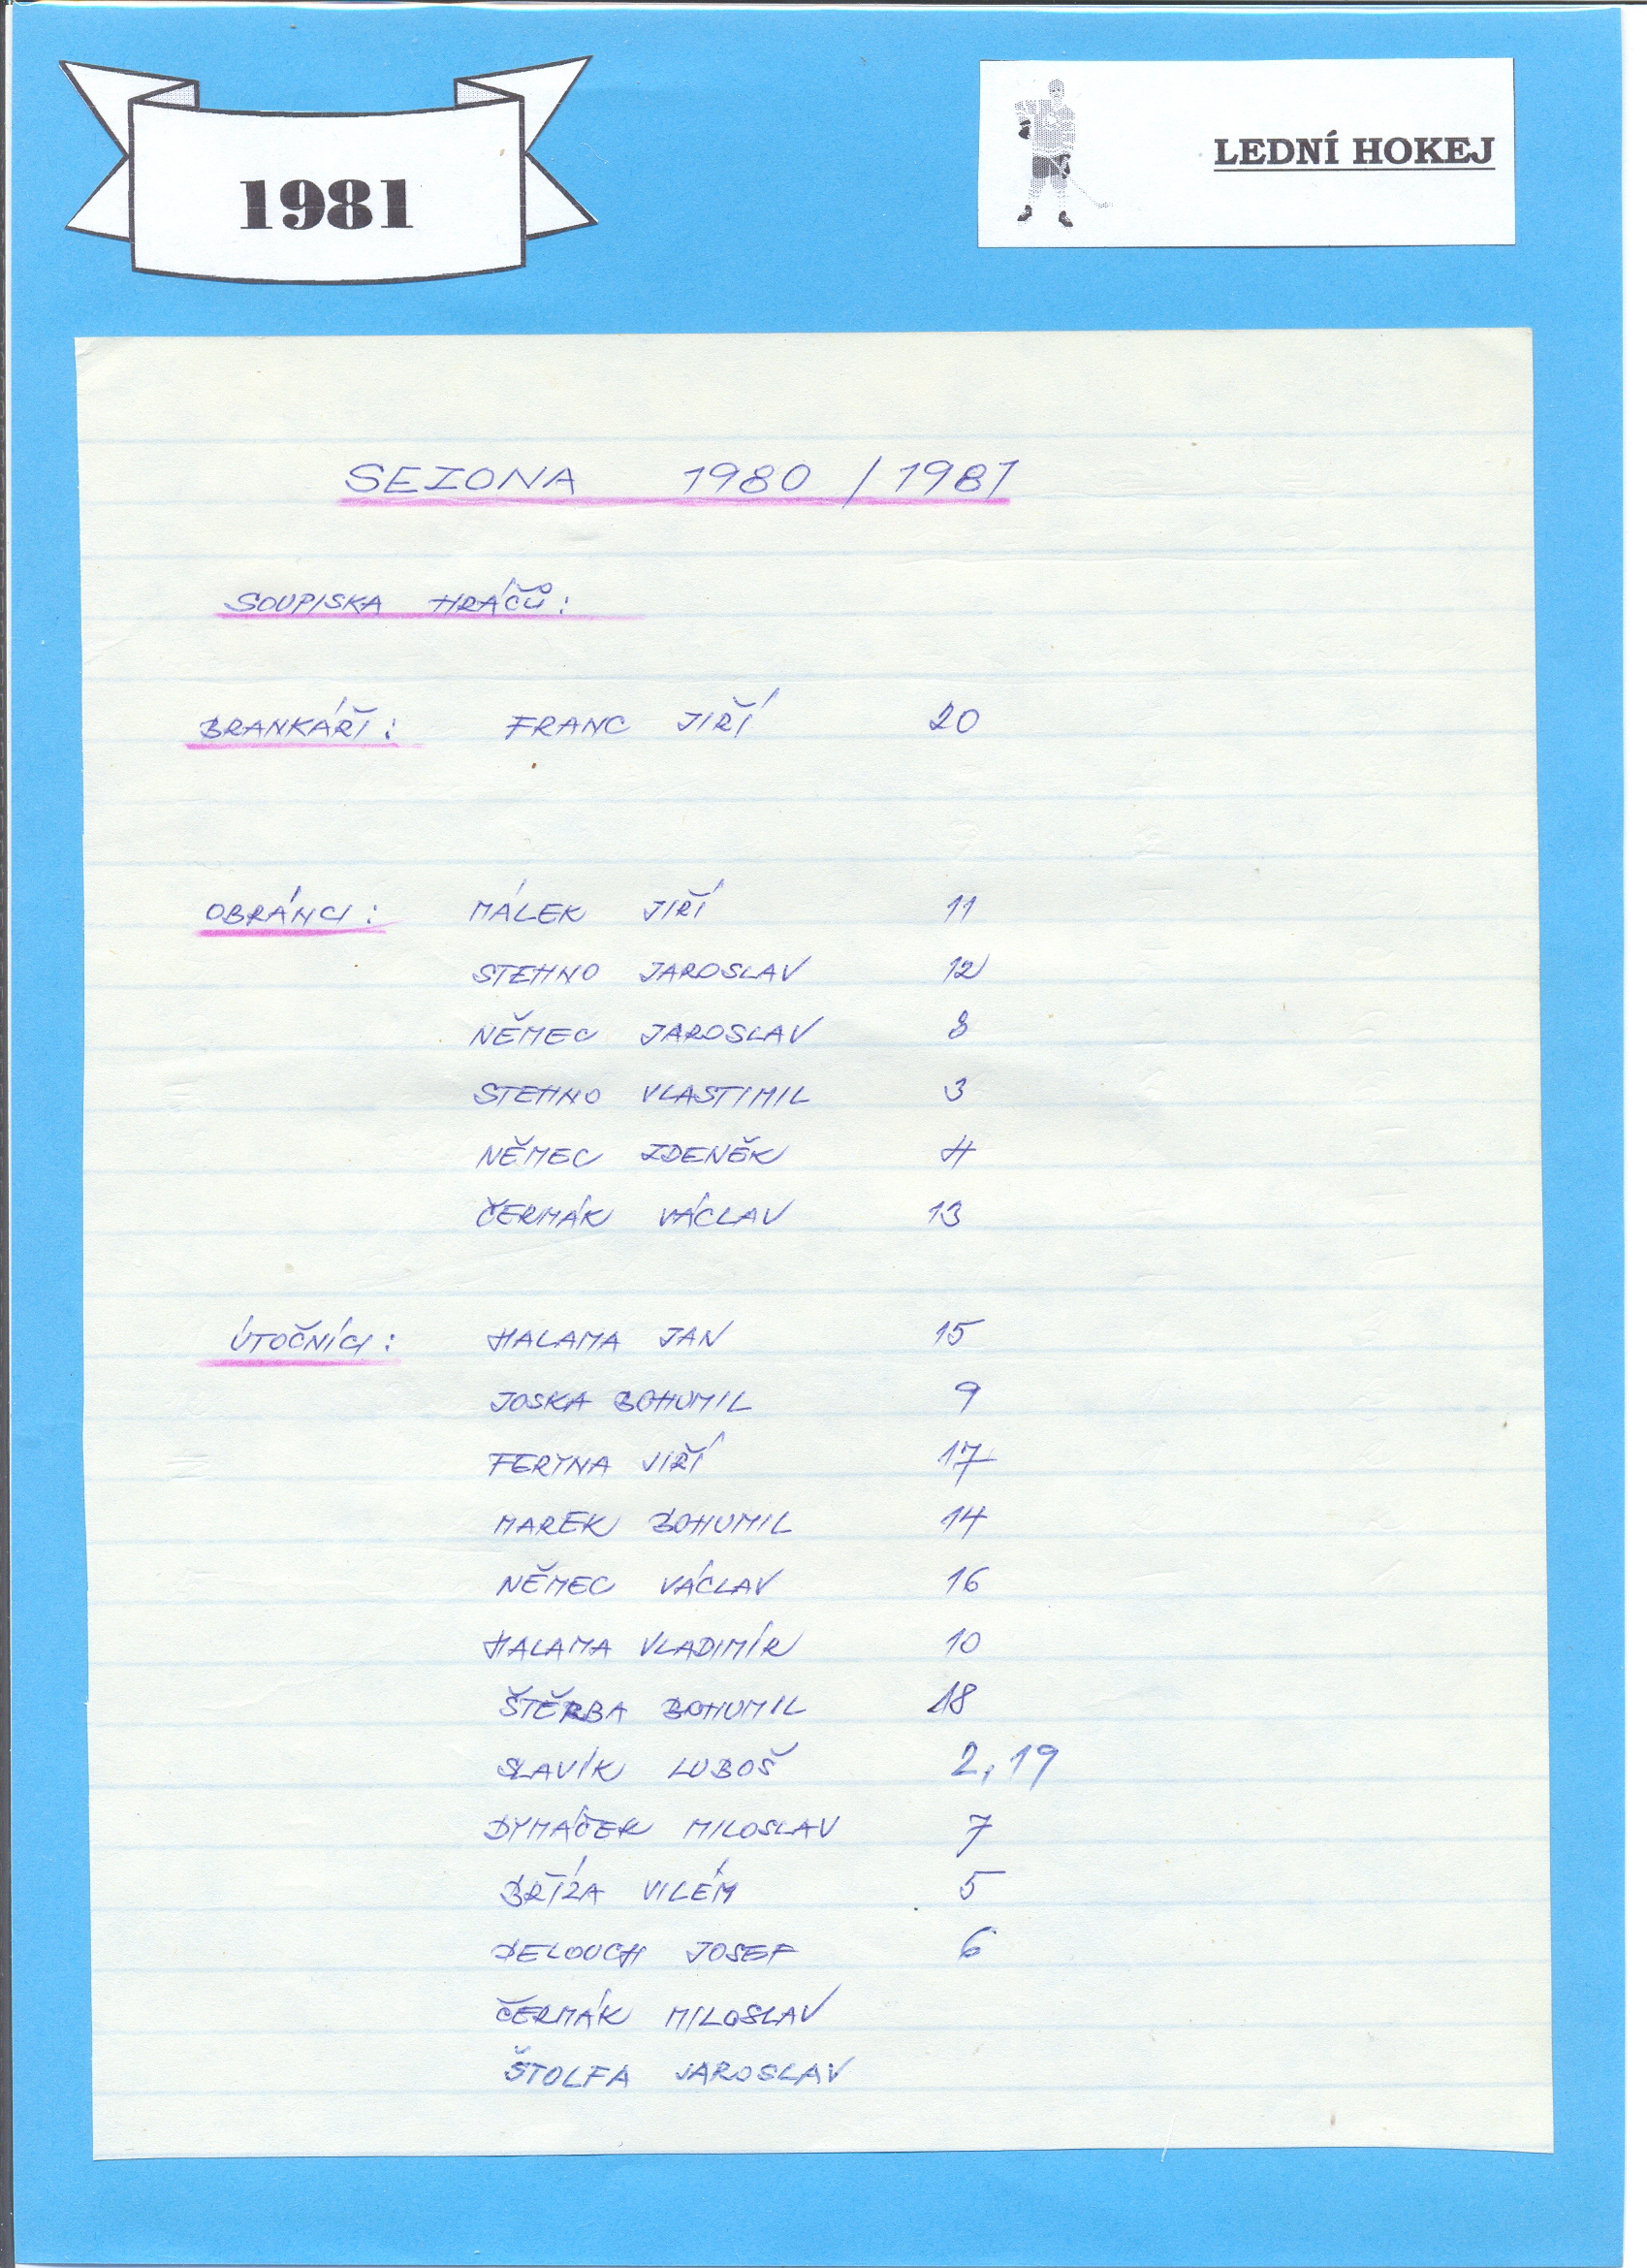 1981
LEDNÍ HOKEJ
SEZONA 1980 / 1981
SOUPISKA HRÁČŮ:
BRANKÁŘI: FRANC JIŘÍ 20
OBRÁNCI: MÁLEK JIŘÍ 11
STEHNO JAROSLAV 12
NĚMEC JAROSLAV 8
STEHNO VLASTIMIL 3
NĚMEC ZDENĚK 4
ČERMÁK VÁCLAV 13
ÚTOČNÍCI: HALAMA JAN 15
JOSKA BOHUMIL 9
FERYNA JIŘÍ 17
MAREK BOHUMIL 14
NĚMEC VÁCLAV 16
HALAMA VLADIMÍR 10
ŠTĚRBA BOHUMIL 18
SLAVÍK LUBOŠ 2, 19
DYMÁČEK MILOSLAV 7
BŘÍZA VILÉM 5
DELOUCH JOSEF 6
ČERMÁK MILOSLAV
ŠTOLFA JAROSLAV